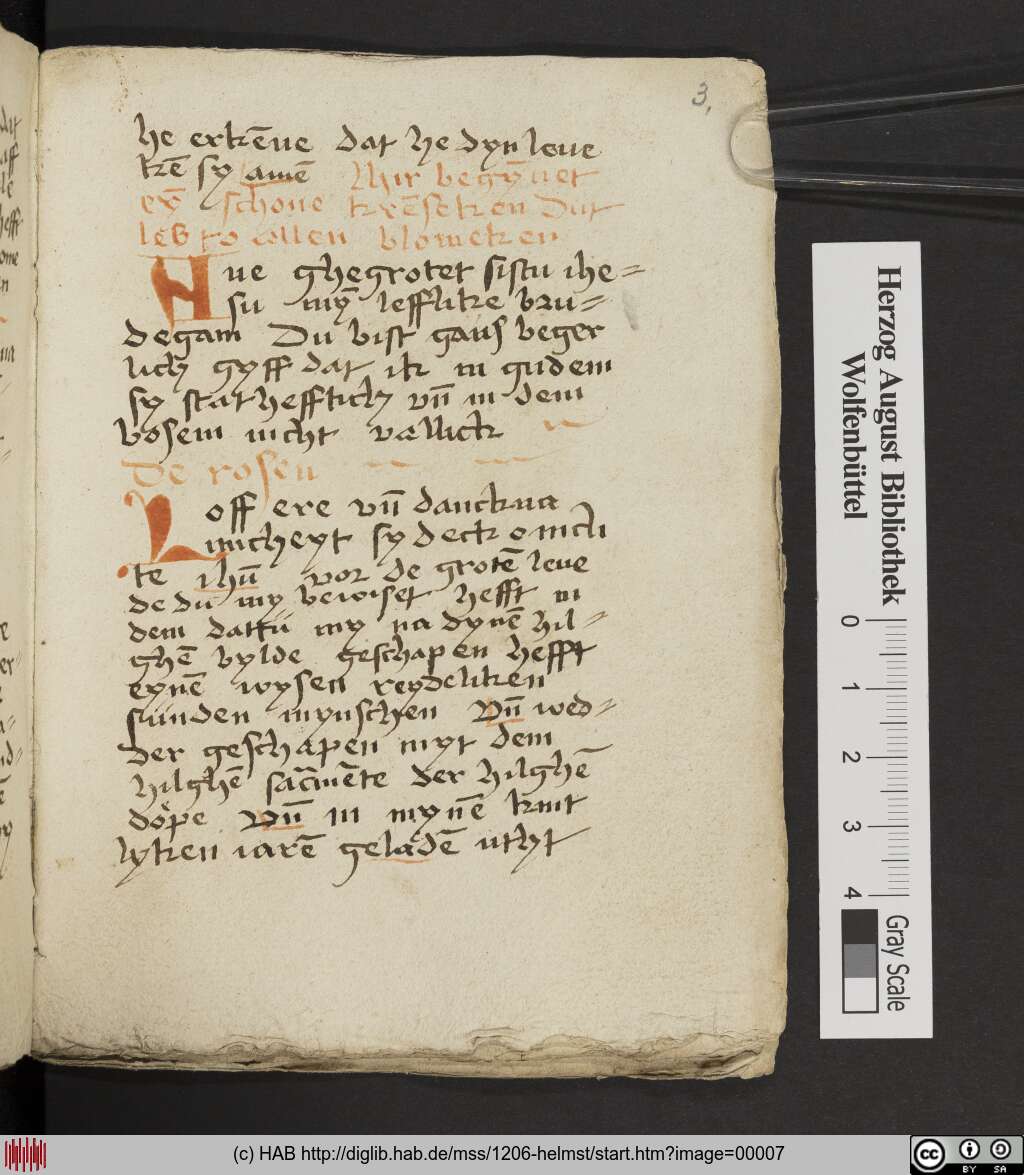 3.
he erkēne dat he dyn leue
kē sy amē Hir begȳnet
eȳ schone krēseken dat
leß to allen blomeken
Nue ghegrotet sistu ihe=
su mȳ lefflike bru=
degam Du bist gans beger
lich gyff dat ik in gudem
sy stathefftich vn̄ in dem
bosem nicht vallick
De rosen
Loff ere vn̄ danckna
micheyt sy deck o mich
te ihū vor de grotē leue
de du my bewiset hefft in
dem dattu my na dynē hil=
ghē bylde geschapen hefft
eynē wysen reydeliken
sunden mynschen Vn̄ wed=
der geschapen myt dem
hilghē sacmēte der hilghē
döpe Vn̄ in mynē kint
lyken iarē geladē utht
Herzog August Bibliothek
Wolfenbüttel
0 1 2 3 4
Gray Scale
(c) HAB http://diglib.hab.de/mss/1206-helmst/start.htm?image=00007
cc BY SA